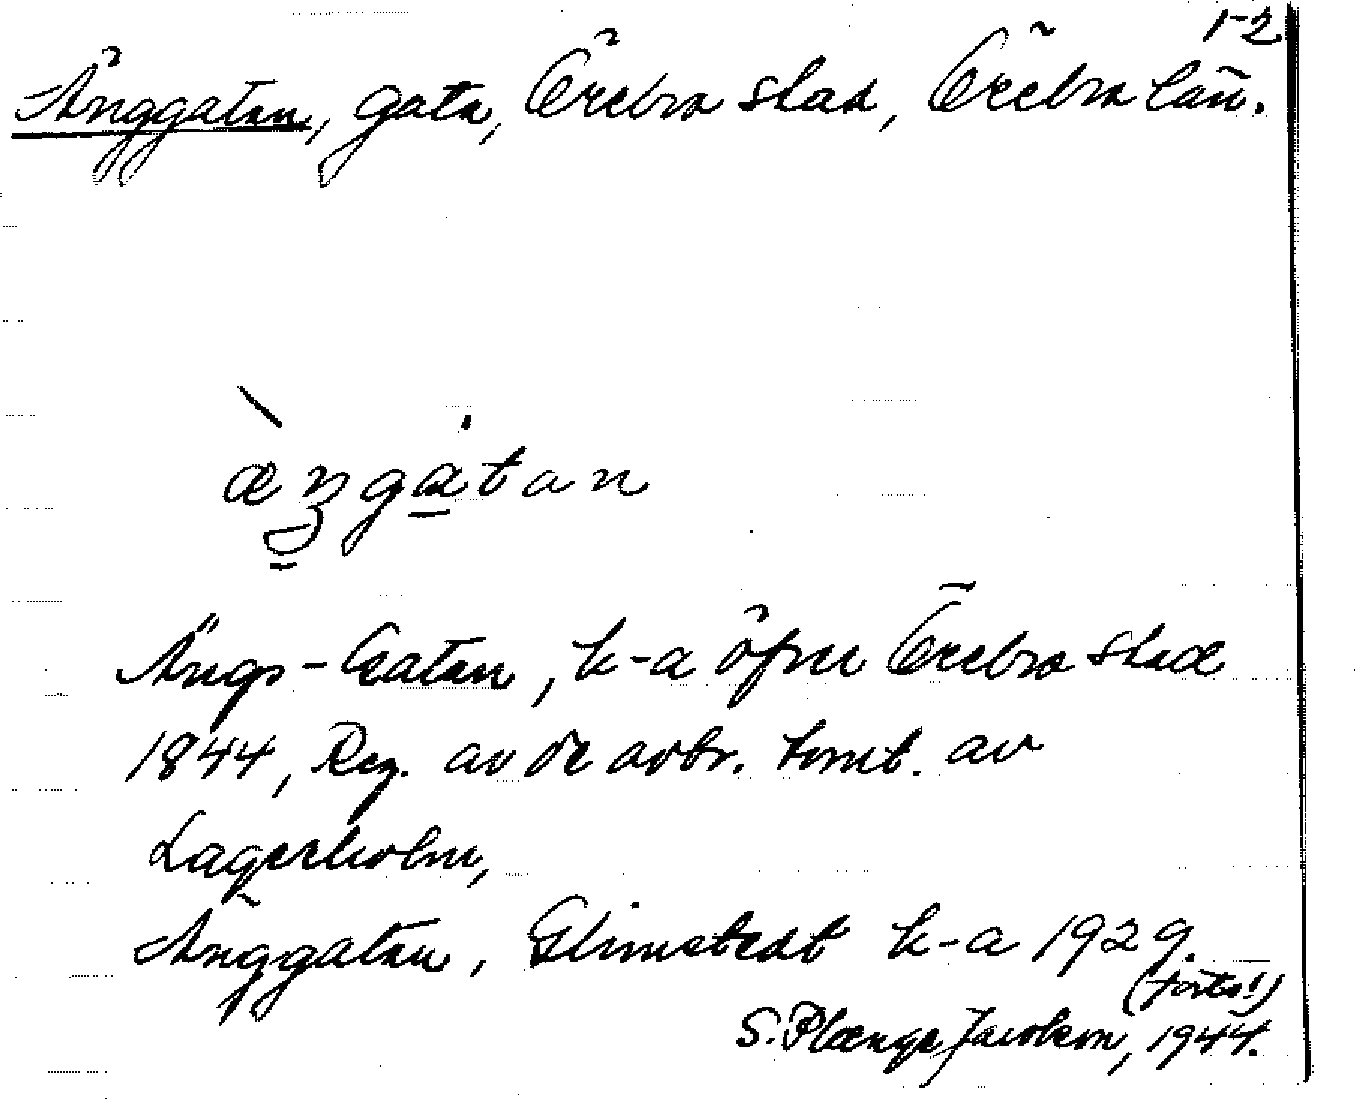 1-2
Änggatan, gata, Örebro stad, Örebro län.
æŋgatan
Ängs-Gatan, k-a öfver Örebro stad
1844, Reg. av de avbr. tomt. av
Lagerholm,
Änggatan, Glimstedt k-a 1929.
(forts!)
S. Plænge Jacobson, 1944.